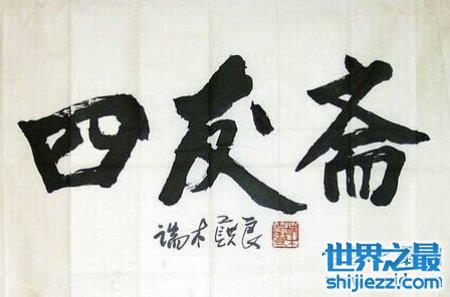 四友斋
端木蕻良
世界之最
shijiezz!.com